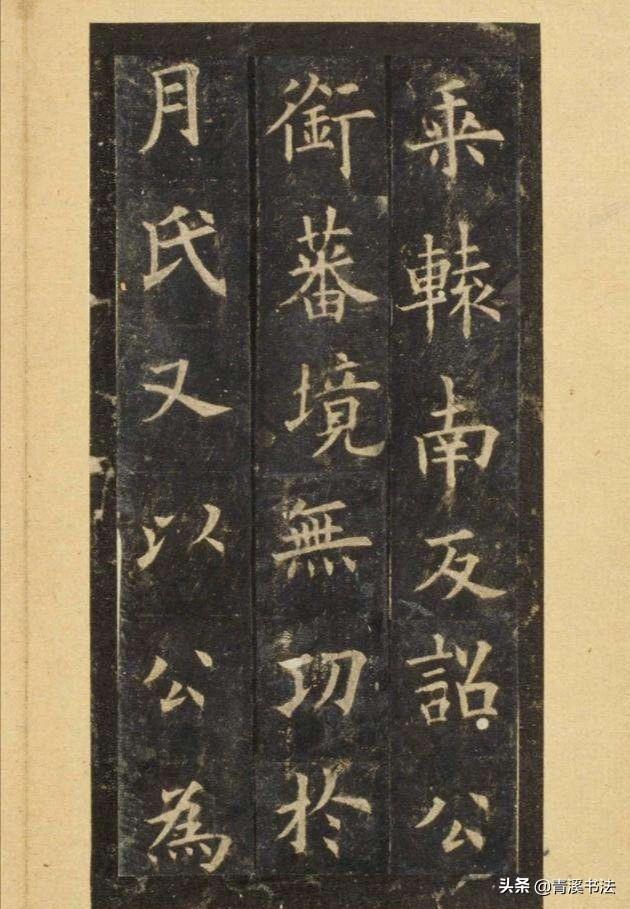 乘轅南反詔公
銜蕃境無功於
月氏又以公為
头条 @青溪书法